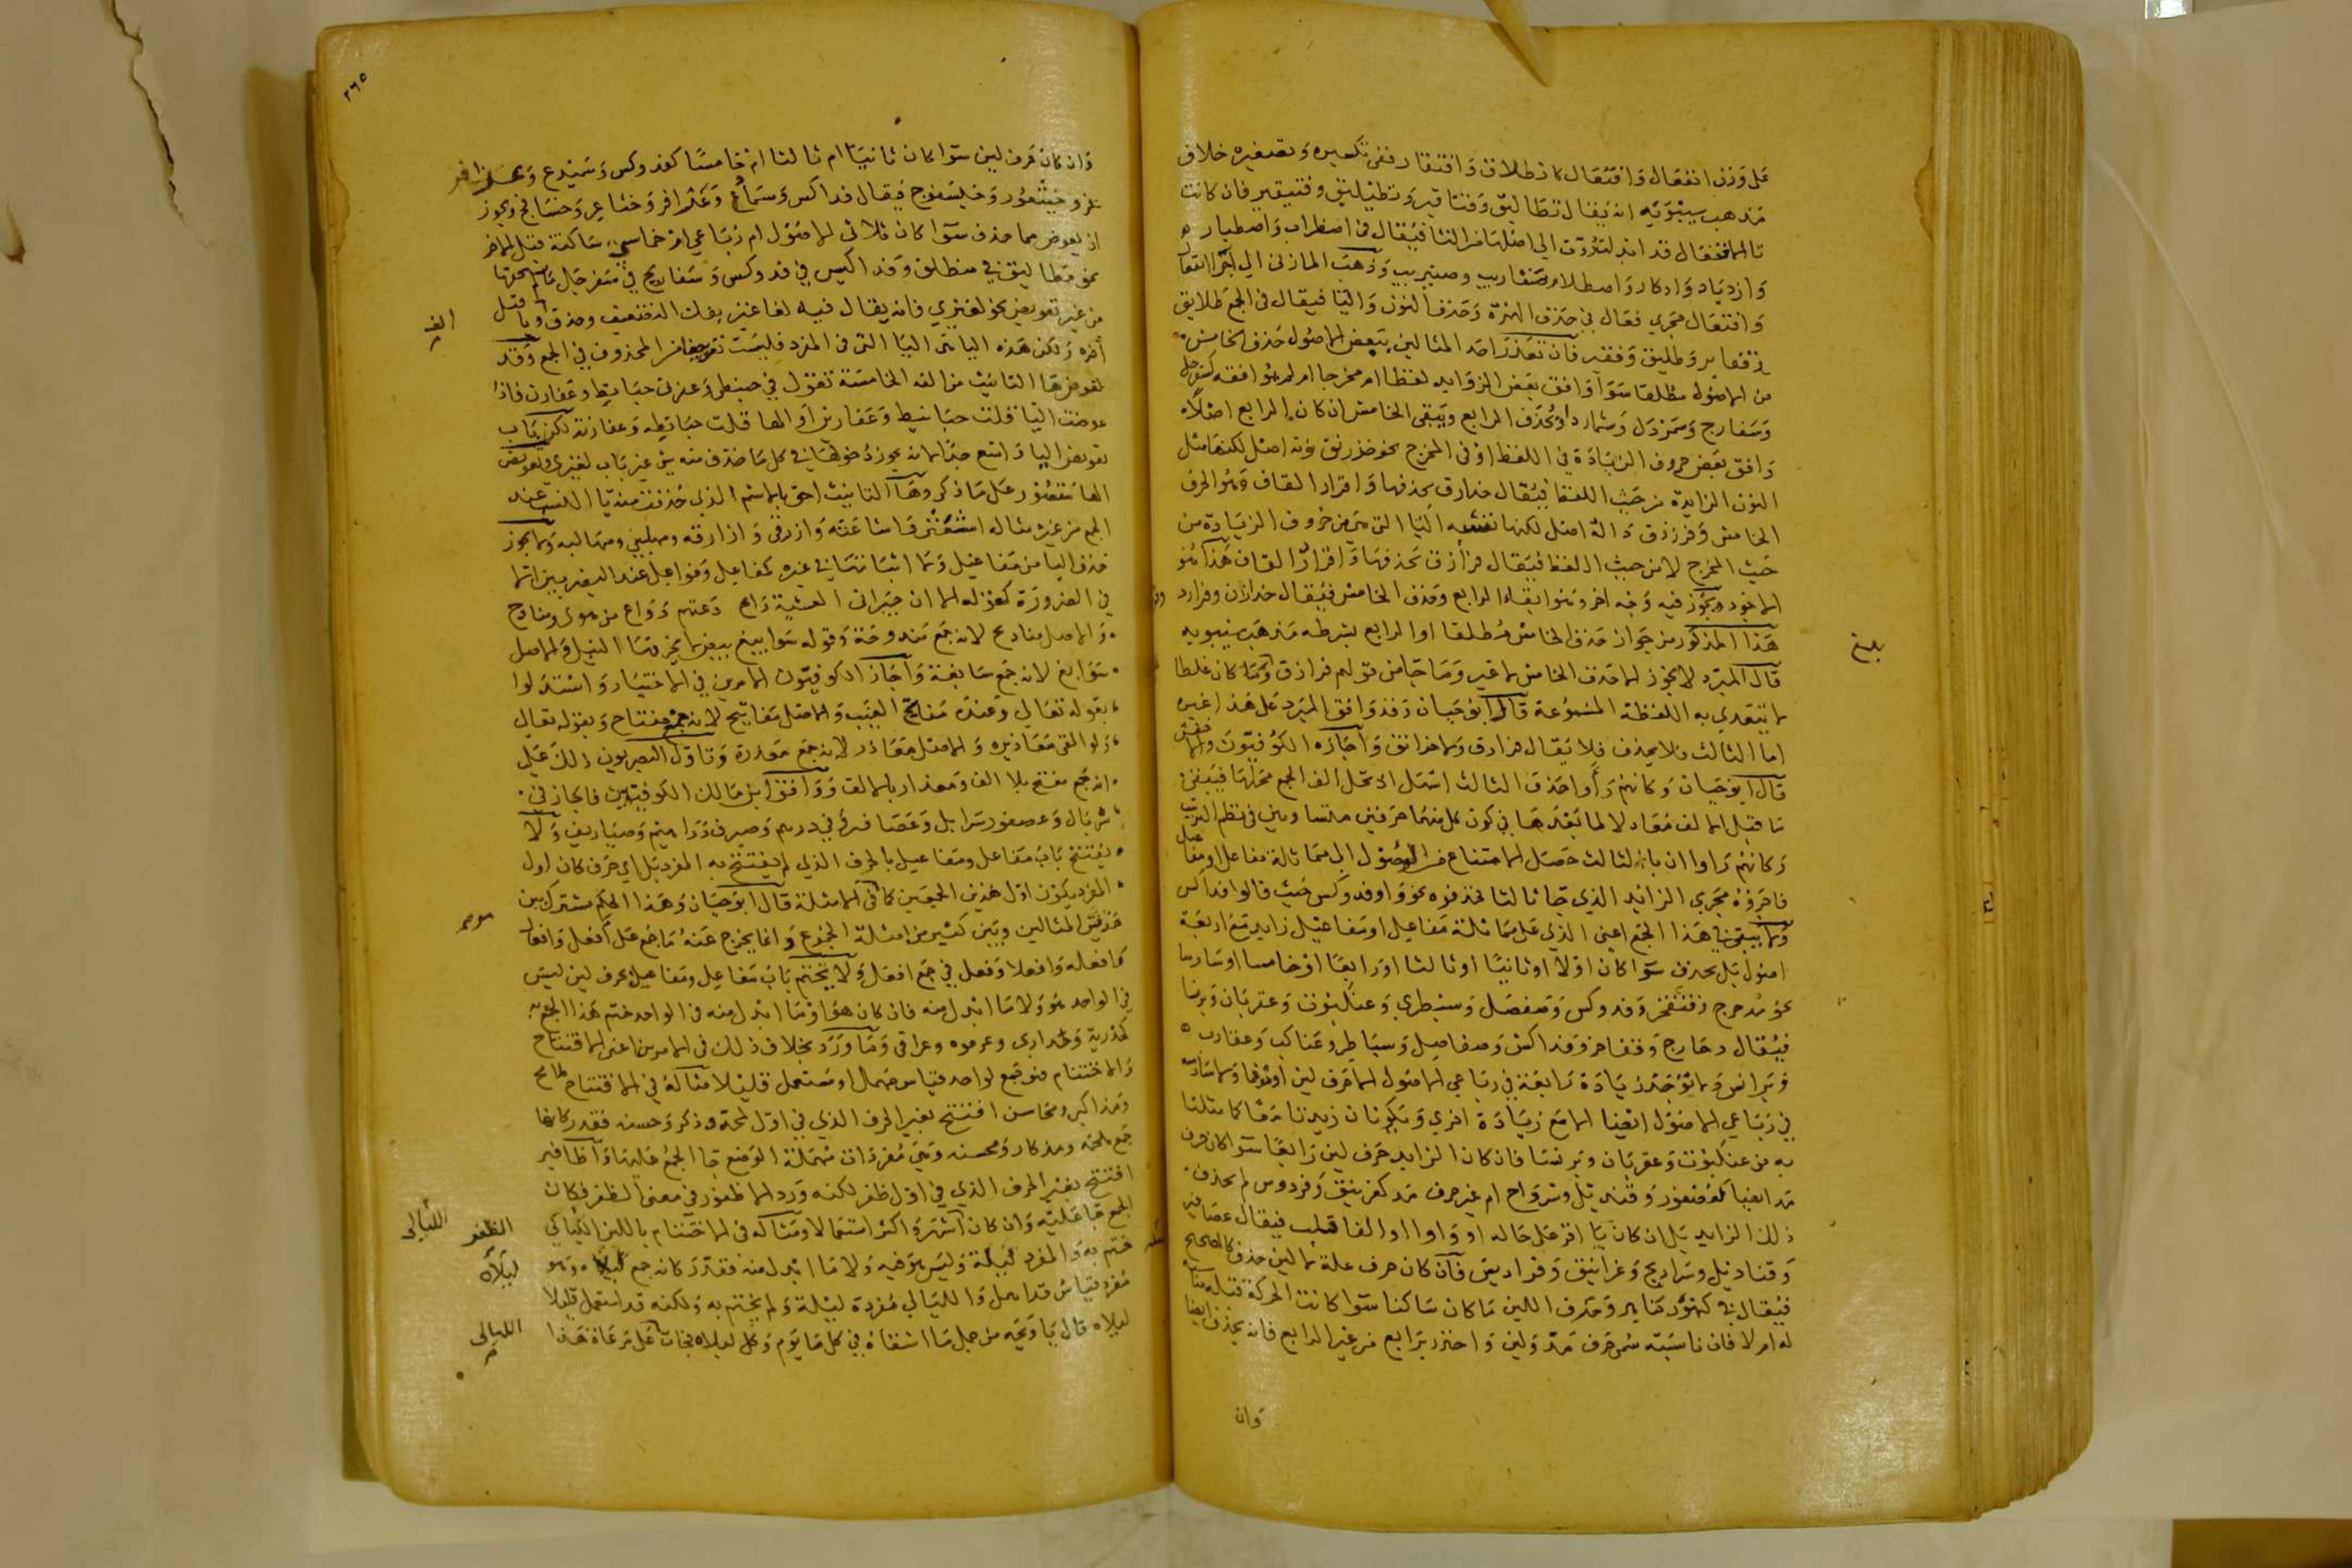 على وزن انفعال وافتعال كانطلاق وافتقار ففي تكسيره وتصغيره خلاف
مذهب سيبويه انه يقال نطاليق وفتاقير ونطيليق وفتيقير فان كانت
تا الافتعال قد ابدلت ردت الى اصلها من التا فيقال في اضطراب واصطبار
وازدياد وادكار واصطلام ضتاريب وضتيريب وذهب المازني الى
وافتعال مجرى فعال في حذف الهمزة وحذف النون والتا فيقال في الجمع طلايق
وفقاير وطليق وفقير فان تعذر احد المثالين ببعض الاصول حذف الخامس
من الاصول مطلقا سوا وافق بعض الزوايد لفظا ام مخرجا ام لم يوافقه كسفرجل
وسفارج وشمردل وشمارد او يحذف الرابع ويبقى الخامس ان كان الرابع اصلا
وافق بعض حروف الزيادة في اللفظ او في المخرج نحو خدرنق نونه اصل لكنها مثل
النون الزايدة من حيث اللفظ فيقال خدارق بحذفها واقرار القاف وهو الحرف
الخامس وفرزدق داله اصل لكنها تشبه التا التي هي من حروف الزيادة من
حيث المخرج لا من حيث اللفظ فيقال فرازق بحذفها واقرار القاف هذا هو
الاجود ويجوز فيه وجه اخر وهو ابقاء الرابع وحذف الخامس فيقال خدارن وفرازد
هذا المذكور من جواز حذف الخامس مطلقا او الرابع بشرطه مذهب سيبويه
قال المبرد لا يجوز الا حذف الخامس لا غير وما جا من قولهم فرازق وكما كان غلطا
لا تتعدى به اللفظة المسموعة قال ابو حيان وقد وافق المبرد على هذا غيره
اما الثالث فلا يحذف فلا يقال فزادق ولا خدانق واجازه الكوفيون والاخفش
قال ابو حيان وكانهم راوا حذف الثالث اسهل اذ تحل الف الجمع محلها فيبقى
ما قبل الالف معادلا لما بعدها في كون كل منهما حرفين متساويين في نظم الترتيب
وكانهم راوا ان بالثالث حصل الامتناع من الوصول الى مماثلة مفاعل او مفاعيل
فاجروه مجرى الزايد الذي جا ثالثا فحذفوه نحو واو فدوكس حيث قالوا فداكس
ولا يبقى في هذا الجمع اعني الذي على مماثلة مفاعل او مفاعيل زايد مع اربعة
اصول بل يحذف سوا كان اولا او ثانيا او ثالثا او رابعا او خامسا او سادسا
نحو مدحرج وقنفخر وفدوكس وصفصل وسبطرى وعنكبوت وعقربان وبرنسا
فيقال دحارج وقفاخر وفداكس وصفاصل وسباطر وعناكب وعقارب
وبرانس ولا توجد زيادة رابعة في رباعي الاصول الا حرف لين ولا سادسة
في رباعي الاصول ايضا الا مع زيادة اخرى ويكونان زيدتا معا كما مثلنا
به من عنكبوت وعقربان وبرنسا فان كان الزايد حرف لين رابعا سوا كان حرف
مد ايضا كعصفور وقنديل وسرواح ام غير حرف مد كغرنيق وفردوس لم يحذف
ذلك الزايد بل ان كان يا اقر على حاله او واوا او الفا قلب فيقال عصافير
وقناديل وسراديح وغرانيق وفراديس فان كان حرف علة لا لين حذف كالصحيح
فيقال في كنهور كناهر وحرف اللين ما كان ساكنا سوا كانت الحركة قبله مناسبة
له ام لا فان ناسبته سمي حرف مد ولين واحترز برابع من غير الرابع فانه يحذف ايضا
وان
بلغ
٢٦٥
وان كان حرف لين سوا كان ثانيا ام ثالثا ام خامسا كفدوكس وسميدع
وخيتعور وخيسفوج فيقال فداكس وسمادع وعذافر وختاعر وخسافج ويجوز
ان يعوض مما حذف سوا كان ثلاثي الاصول ام رباعي ام خماسي ياء ساكنة قبل الاخر
نحو مطاليق في منطلق وفداكيس في فدوكس وسفاريج في سفرجل ما لم يستحقها
من غير تعويض نحو لغيزى فانه يقال فيه لغاغيز بفك التضعيف وحذف
اخره ولكن هذه اليا هي اليا التي في المفرد فليست تعويضا من المحذوف في الجمع وقد
تعوض ها التانيث من الفه الخامسة تقول في حبنطى وعفرنى حبانط وعفارن فاذا
عوضت اليا قلت حبانيط وعفارين او الها قلت حبانطة وعفارنة لكن باب
تعويض اليا واسع جدا لانه يجوز دخولها في كل ما حذف منه شي غير باب لغيزى وتعويض
الها مقصور على ما ذكر وها التانيث احق بالاسم الذي حذفت منه يا النسب عند
الجمع من غيره مثاله اشعثي واشاعثة وازرقي وازارقة ومهلبي ومهالبة ولا يجوز
حذف اليا من مفاعيل ولا اثباتها في غيره كمفاعل وفواعل عند البصريين الا
في الضرورة كقوله الا ان جيراني العشية رايح دعتهم دواع من هوى ومنادح
والاصل مناديح لانه جمع مندوحة وقوله سوابيغ بيض لا يخرقها النبل والاصل
سوابغ لانه جمع سابغة واجاز الكوفيون الامرين في الاختيار واستدلوا
بقوله تعالى وعنده مفاتح الغيب والاصل مفاتيح لانه جمع مفتاح وبقوله تعالى
ولو القى معاذيره والاصل معاذر لانه جمع معذرة وتاول البصريون ذلك على
انه جمع مفتح بلا الف ومعذار بالالف ووافق ابن مالك الكوفيين فاجاز في
سربال وعصفور سرابل وعصافر وفي درهم وصيرف دراهيم وصياريف ولا
يفتتح باب مفاعل ومفاعيل بالحرف الذي لم يفتتح به المفرد بل اي حرف كان اول
المفرد يكون اول هذين الجمعين كما في الامثلة قال ابو حيان وهذا الحكم مشترك بين
هذين المثالين وبين كثير من امثلة الجموع وانما يخرج عنه ما جمع على افعل وافعال
وافعلة وافعلا وفعل في جمع افعل ولا يختتم باب مفاعل ومفاعيل بحرف لين ليس
في الواحد هو ولا ما ابدل منه فان كان هو او ما ابدل منه في الواحد ختم هذا الجمع به
كحذرية وحذارى وعرقوة وعراقي وما ورد بخلاف ذلك في الامرين اعني الافتتاح
والاختتام فهو جمع لواحد قياسي مهمل او مستعمل قليلا مثاله في الافتتاح ملامح
ومذاكير ومحاسن افتتح بغير الحرف الذي في اول لمحة وذكر وحسن فقدر كانها
جمع ملمحة ومذكار ومحسن وهي مفردات مهملة الوضع جا الجمع عليها واظافير
افتتح بغير الحرف الذي في اول ظفر لكنه ورد الاظفور في معنى الظفر فكان
الجمع جا عليه وان كان اشهر واكثر استعمالا ومثاله في الاختتام باللين الليالي
ختم به والمفرد ليلة وليس هو فيه ولا ما ابدل منه فقدر كانه جمع ليلاه وهو
مفرد قياس قد اهمل والليالي مفرده ليلة ولم يختتم به ولكنه قد استعمل قليلا
ليلاه قال يا ويحه من جمل ما اشقاه في كل ما يوم وكل ليلاه فجات على مرعاة هذا
الف
الظفر
الليالى
ليلاه
الليالى